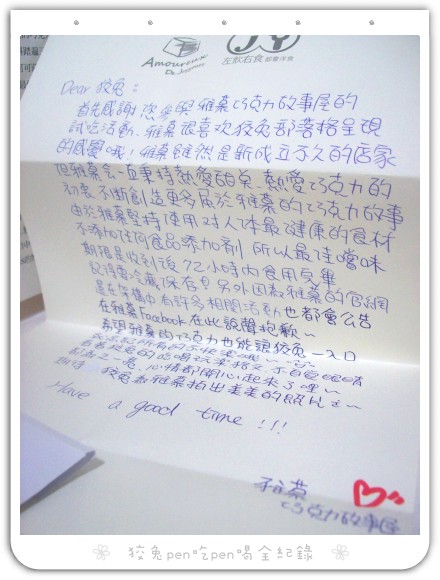 Amoureux
De Japonais
JY
左欽右食
Dear 狡兔：
首先感謝您參與雅慕巧克力故事屋的
試吃活動、雅慕很喜歡狡兔部落格呈現
的感覺哦！雅慕雖然是新成立不久的店家
但雅慕會一直秉持熱愛甜美、熱愛巧克力的
初衷不斷創造更多屬於雅慕的巧克力故事
由於雅慕堅持使用對人体最健康的食材
不添加任何食品添加劑 所以最佳嚐味
期限是收到後72小時內食用完畢
記得要冷藏保存 另外因為雅慕的官網
還在架構中 有許多相關活動也都會公告
在雅慕Facebook 在此說聲抱歉～
希望雅慕的巧克力也能讓狡兔一入口
心情都開心起來了哩～
狡兔和雅慕拍出美美的照片
Have a good time !!!
雅慕
巧克力故事屋
狡兔pen吃pen喝全紀錄